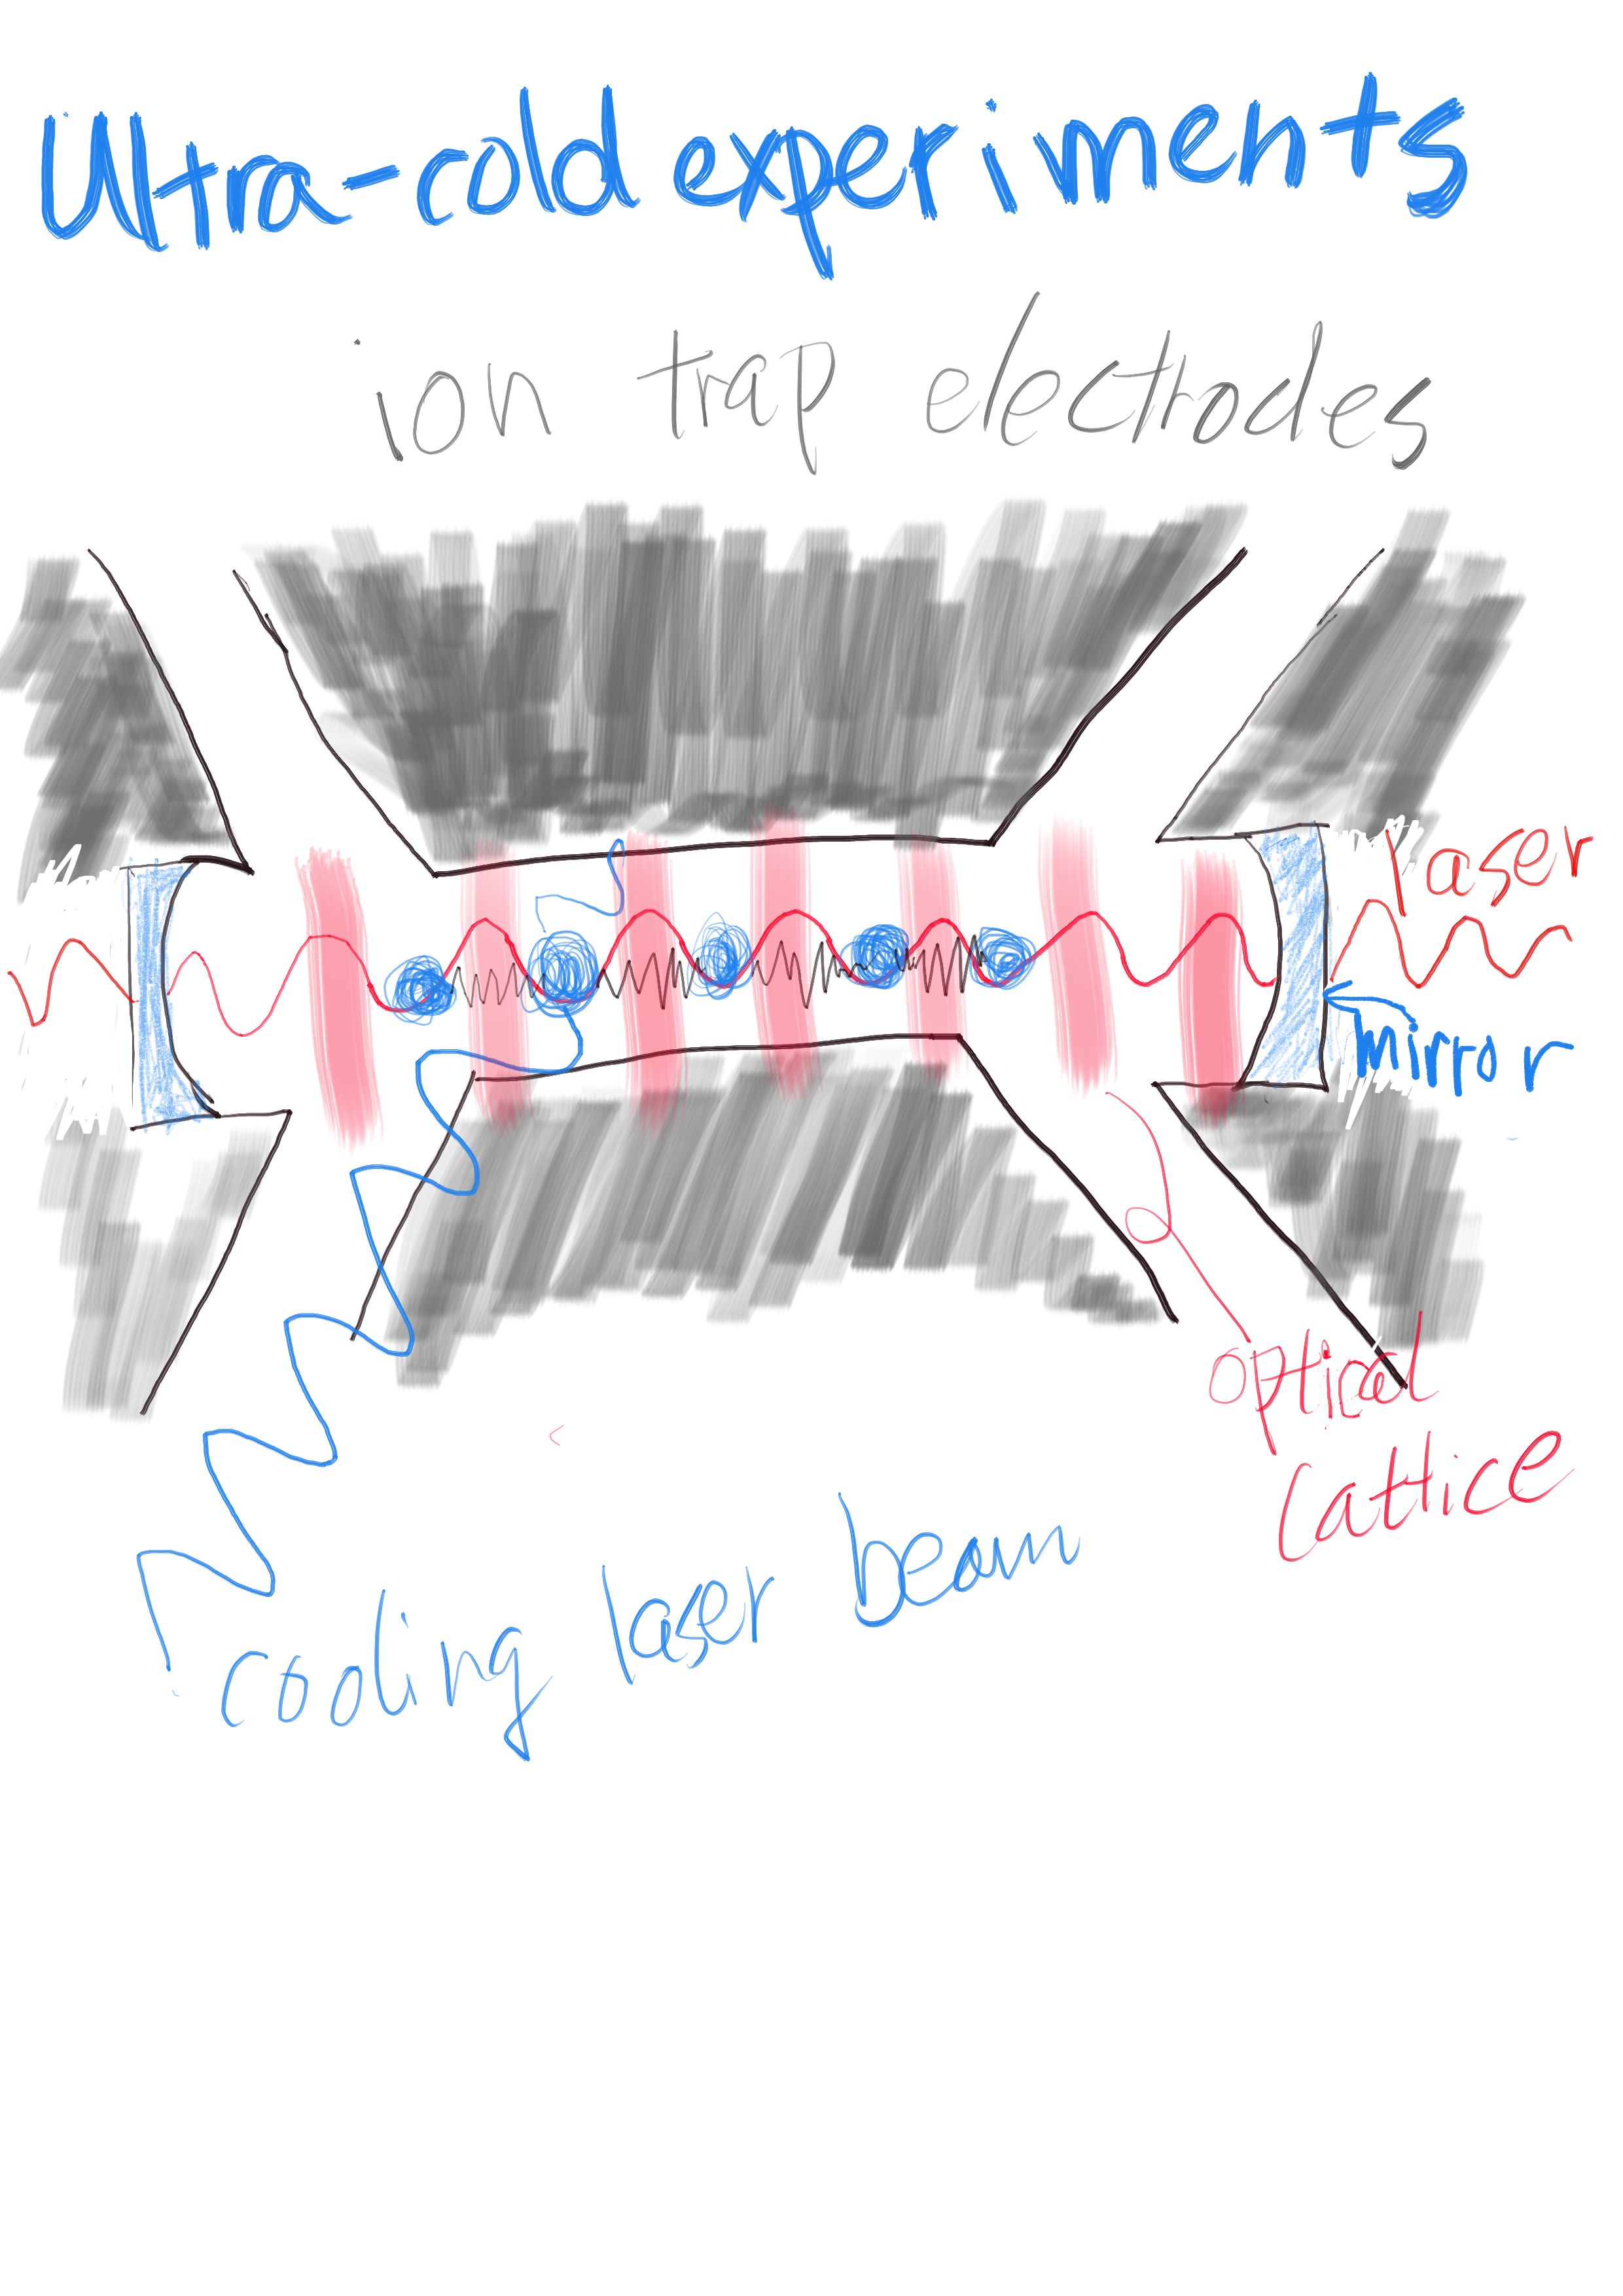 Ultra-cold experiments
ion trap electrodes
laser
mirror
optical
lattice
cooling laser beam